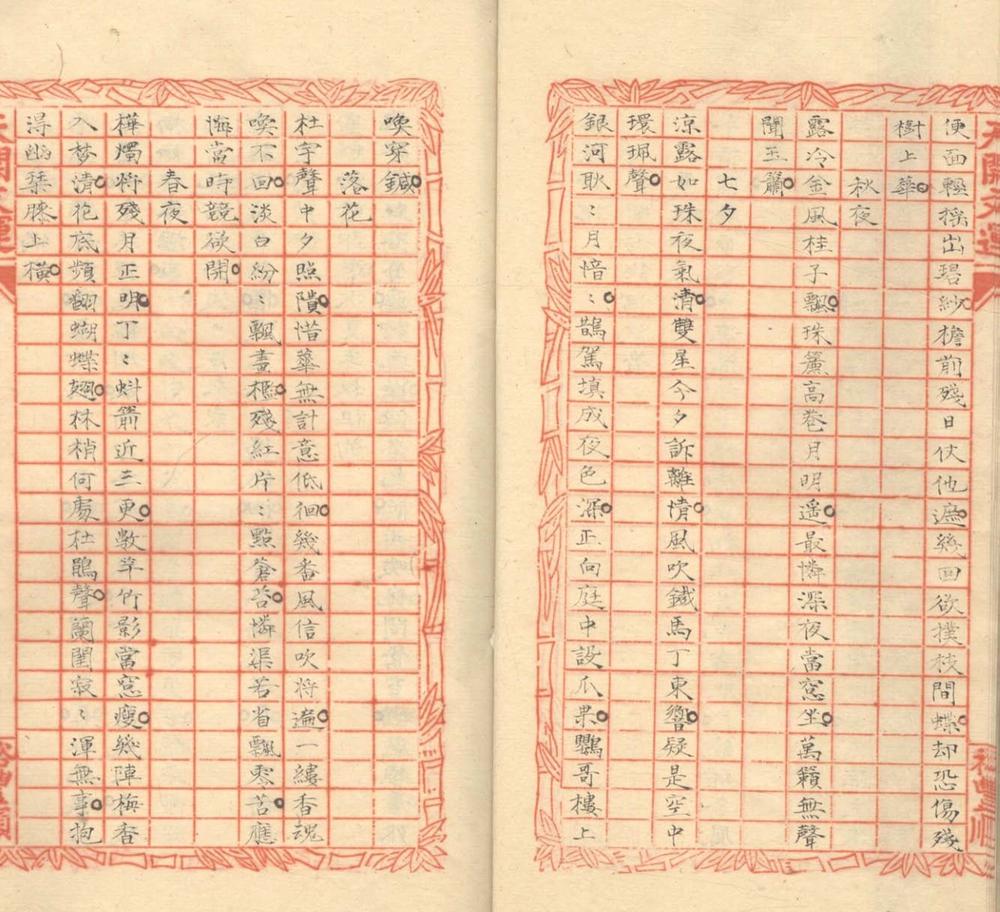 便面輕搖出碧紗檐前殘日伏他遮幾回欲撲枝間蝶却恐傷殘
樹上華
秋夜
露冷金風桂子飄珠簾高卷月明遥最憐深夜當窓坐萬籟無聲
聞玉簫
七夕
涼露如珠夜氣清雙星今夕訴離情風吹鐵馬丁東響疑是空中
環珮聲
銀河耿〻月愔〻鵲駕填成夜色深正向庭中設瓜果鸚哥樓上
喚穿鍼
落花
杜宇聲中夕照隤惜華無計意低徊幾番風信吹將遍一縷香魂
喚不回淡白紛〻飄畫檻殘紅片〻點蒼苔憐渠若省飄零苦應
悔當時競欲開
春夜
樺燭將殘月正明丁〻蚪箭近三更數竿竹影當窓瘦幾陣梅香
入梦清花底頻翻蝴蝶翅林梢何處杜鵑聲蘭閨寂〻渾無事抱
得幽琹膝上横